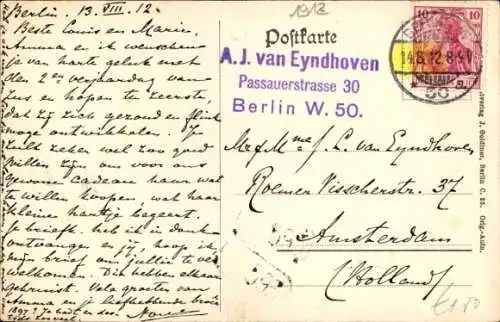 Berlin, 13 VIII 12.
1912
Beste Louis en Marie,
Amma en ik wenschen
je van harte geluk met
den 2en verjaardag van
Zus en hopen te zeerste,
dat zij zich gezond en flink
moge ontwikkelen. Je
zult zeker wel zoo goed
willen zijn om voor ons
gewone cadeau haar wat
te willen koopen, wat haar
kleine hartje begeert.
Je brief heb ik in dank
ontvangen en jij, hoop ik
mijn brief om jullie te ver
welkomen. Die hebben elkaar
gekruist. Vele groeten van
Amma en je liefhebbende broer
Postkarte
A. J. van Eyndhoven
Passauerstrasse 30
Berlin W. 50.
10 10
14.8.12.8-9V
BERLIN
50
Mr & Mme J. L. van Eyndhoven
Roemer Visscherstr. 37
Amsterdam
(Holland)
J. Goldiner, Berlin C. 25.